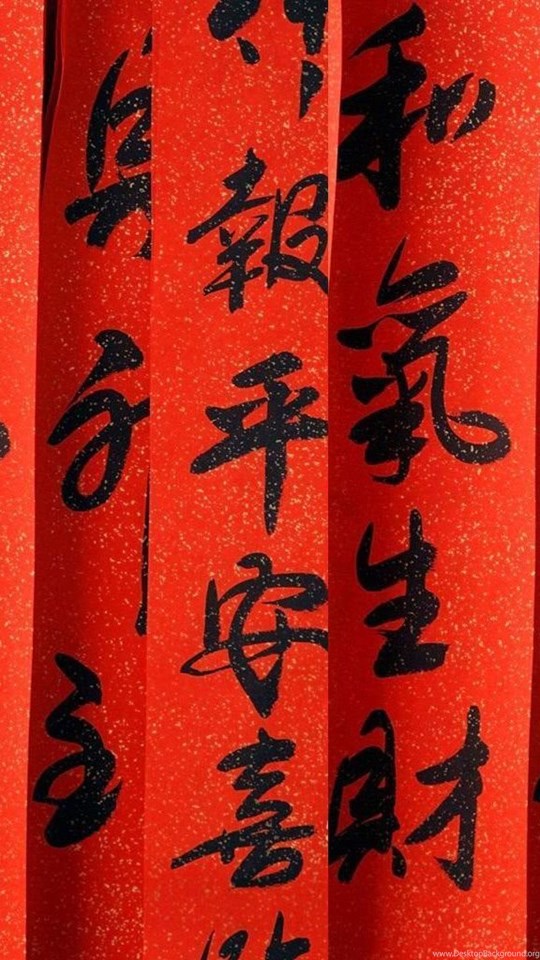 和氣生財
竹報平安喜
主
www.DesktopBackground.org